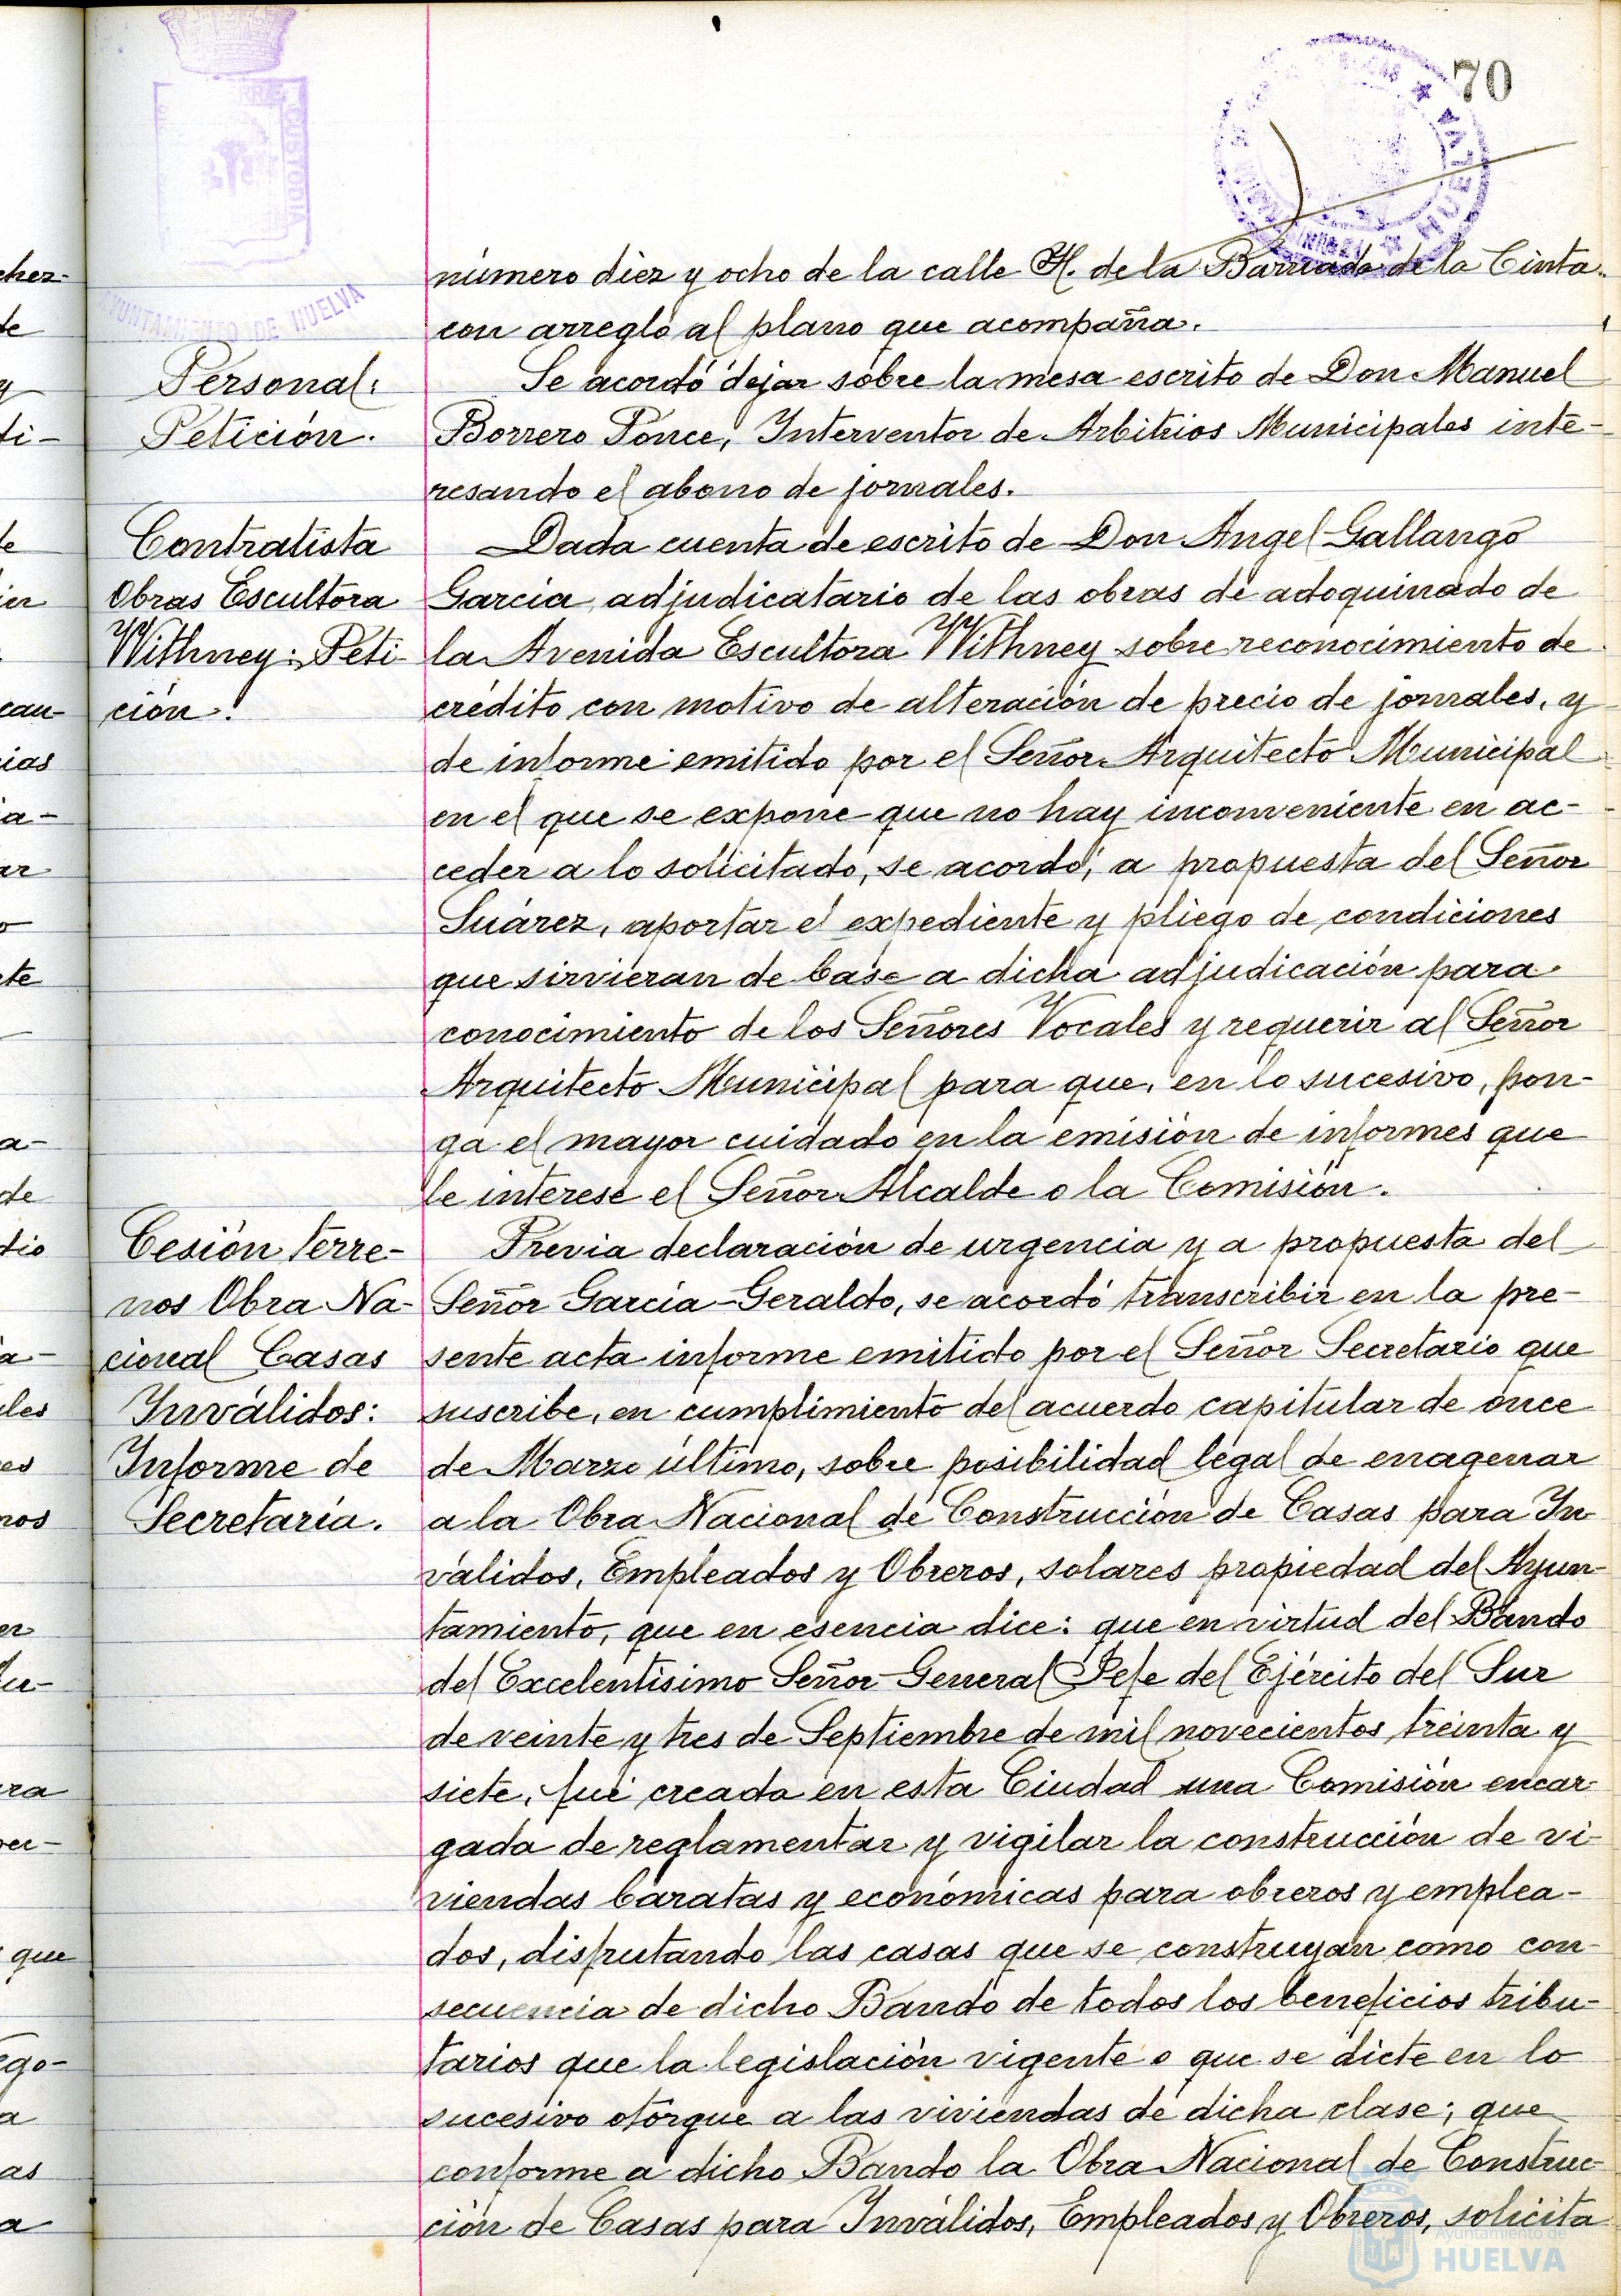 70
PORTUS MARIS ET TERRE CUSTODIA
AYUNTAMIENTO DE HUELVA
HUELVA
número diez y ocho de la calle H. de la Barriada de la Cinta.
con arreglo al plano que acompaña.
Personal:
Petición.
Se acordó dejar sobre la mesa escrito de Don Manuel
Borrero Ponce, Interventor de Arbitrios Municipales inte-
resando el abono de jornales.
Contratista
Obras Escultora
Withney: Peti-
ción.
Dada cuenta de escrito de Don Angel Gallango
Garcia adjudicatario de las obras de adoquinado de
la Avenida Escultora Withney sobre reconocimiento de
crédito con motivo de alteración de precio de jornales, y
de informe emitido por el Señor Arquitecto Municipal
en el que se expone que no hay inconveniente en ac-
ceder a lo solicitado, se acordó, a propuesta del Señor
Suárez, aportar el expediente y pliego de condiciones
que sirvieran de base a dicha adjudicación para
conocimiento de los Señores Vocales y requerir al Señor
Arquitecto Municipal para que, en lo sucesivo, pon-
ga el mayor cuidado en la emisión de informes que
le interese el Señor Alcalde o la Comisión.
Cesión terre-
nos Obra Na-
cional Casas
Inválidos:
Informe de
Secretaría.
Previa declaración de urgencia y a propuesta del
Señor García-Geraldo, se acordó transcribir en la pre-
sente acta informe emitido por el Señor Secretario que
suscribe, en cumplimiento del acuerdo capitular de once
de Marzo último, sobre posibilidad legal de enagenar
a la Obra Nacional de Construcción de Casas para In-
válidos, Empleados y Obreros, solares propiedad del Ayun-
tamiento, que en esencia dice: que en virtud del Bando
del Excelentísimo Señor General Jefe del Ejército del Sur
de veinte y tres de Septiembre de mil novecientos treinta y
siete, fué creada en esta Ciudad una Comisión encar-
gada de reglamentar y vigilar la construcción de vi-
viendas baratas y económicas para obreros y emplea-
dos, disfrutando las casas que se construyan como con-
secuencia de dicho Bando de todos los beneficios tribu-
tarios que la legislación vigente o que se dicte en lo
sucesivo otorgue a las viviendas de dicha clase; que
conforme a dicho Bando la Obra Nacional de Construc-
ción de Casas para Inválidos, Empleados y Obreros, solicita
Ayuntamiento de
HUELVA